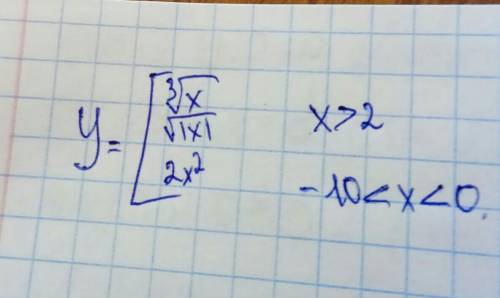 y = [ ∛x
√|x| x>2
2x² -10<x<0.